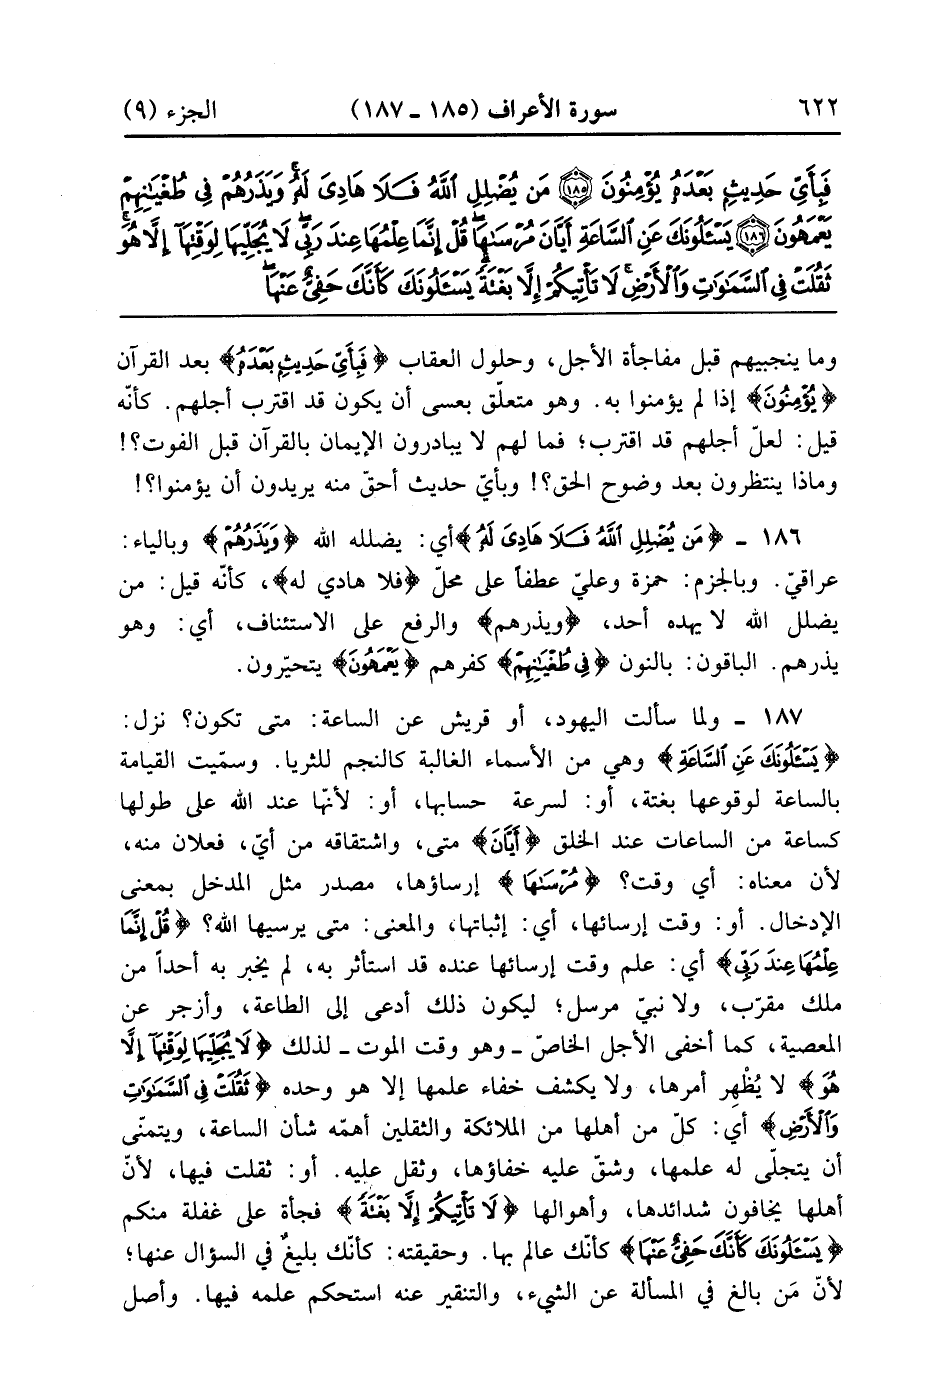 ٦٢٢ سورة الأعراف (١٨٥ ـ ١٨٧) الجزء (٩)
فَبِأَيِّ حَدِيثٍ بَعْدَهُۥ يُؤْمِنُونَ ١٨٥ مَن يُضْلِلِ ٱللَّهُ فَلَا هَادِىَ لَهُۥ ۚ وَيَذَرُهُمْ فِى طُغْيَـٰنِهِمْ
يَعْمَهُونَ ١٨٦ يَسْـَٔلُونَكَ عَنِ ٱلسَّاعَةِ أَيَّانَ مُرْسَىٰهَا ۖ قُلْ إِنَّمَا عِلْمُهَا عِندَ رَبِّى ۖ لَا يُجَلِّيهَا لِوَقْتِهَآ إِلَّا هُوَ ۚ
ثَقُلَتْ فِى ٱلسَّمَـٰوَٰتِ وَٱلْأَرْضِ ۚ لَا تَأْتِيكُمْ إِلَّا بَغْتَةً ۗ يَسْـَٔلُونَكَ كَأَنَّكَ حَفِىٌّ عَنْهَا ۖ
وما ينجيهم قبل مفاجأة الأجل، وحلول العقاب ﴿فَبِأَيِّ حَدِيثٍ بَعْدَهُۥ﴾ بعد القرآن
﴿يُؤْمِنُونَ﴾ إذا لم يؤمنوا به. وهو متعلّق بعسى أن يكون قد اقترب أجلهم. كأنّه
قيل: لعلّ أجلهم قد اقترب؛ فما لهم لا يبادرون الإيمان بالقرآن قبل الفوت؟!
وماذا ينتظرون بعد وضوح الحق؟! وبأيّ حديث أحقّ منه يريدون أن يؤمنوا؟!
١٨٦ ـ ﴿مَن يُضْلِلِ ٱللَّهُ فَلَا هَادِىَ لَهُۥ﴾ أي: يضلله الله ﴿وَيَذَرُهُمْ﴾ وبالياء:
عراقيّ. وبالجزم: حمزة وعليّ عطفاً على محلّ ﴿فلا هادي له﴾، كأنّه قيل: من
يضلل الله لا يهده أحد، ﴿ويذرهم﴾ والرفع على الاستئناف، أي: وهو
يذرهم. الباقون: بالنون ﴿فِى طُغْيَـٰنِهِمْ﴾ كفرهم ﴿يَعْمَهُونَ﴾ يتحيّرون.
١٨٧ ـ ولما سألت اليهود، أو قريش عن الساعة: متى تكون؟ نزل:
﴿يَسْـَٔلُونَكَ عَنِ ٱلسَّاعَةِ﴾ وهي من الأسماء الغالبة كالنجم للثريا. وسمّيت القيامة
بالساعة لوقوعها بغتة، أو: لسرعة حسابها، أو: لأنّها عند الله على طولها
كساعة من الساعات عند الخلق ﴿أَيَّانَ﴾ متى، واشتقاقه من أيّ، فعلان منه،
لأن معناه: أي وقت؟ ﴿مُرْسَىٰهَا﴾ إرساؤها، مصدر مثل المدخل بمعنى
الإدخال. أو: وقت إرسائها، أي: إثباتها، والمعنى: متى يرسيها الله؟ ﴿قُلْ إِنَّمَا
عِلْمُهَا عِندَ رَبِّى﴾ أي: علم وقت إرسائها عنده قد استأثر به، لم يخبر به أحداً من
ملك مقرّب، ولا نبيّ مرسل؛ ليكون ذلك أدعى إلى الطاعة، وأزجر عن
المعصية، كما أخفى الأجل الخاصّ ـ وهو وقت الموت ـ لذلك ﴿لَا يُجَلِّيهَا لِوَقْتِهَآ إِلَّا
هُوَ﴾ لا يُظْهِر أمرها، ولا يكشف خفاء علمها إلا هو وحده ﴿ثَقُلَتْ فِى ٱلسَّمَـٰوَٰتِ
وَٱلْأَرْضِ﴾ أي: كلّ من أهلها من الملائكة والثقلين أهمّه شأن الساعة، ويتمنّى
أن يتجلّى له علمها، وشقّ عليه خفاؤها، وثقل عليه. أو: ثقلت فيها، لأنّ
أهلها يخافون شدائدها، وأهوالها ﴿لَا تَأْتِيكُمْ إِلَّا بَغْتَةً﴾ فجأة على غفلة منكم
﴿يَسْـَٔلُونَكَ كَأَنَّكَ حَفِىٌّ عَنْهَا﴾ كأنّك عالم بها. وحقيقته: كأنّك بليغٌ في السؤال عنها؛
لأنّ مَن بالغ في المسألة عن الشيء، والتنقير عنه استحكم علمه فيها. وأصل